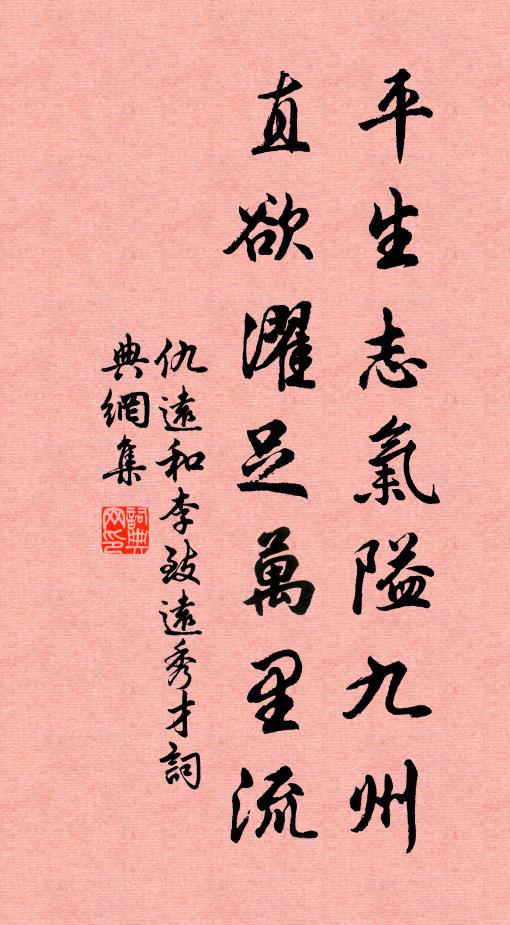 平生志氣隘九州
直欲濯足萬里流
仇遠和李致遠秀才詞
典網集
詞典网印